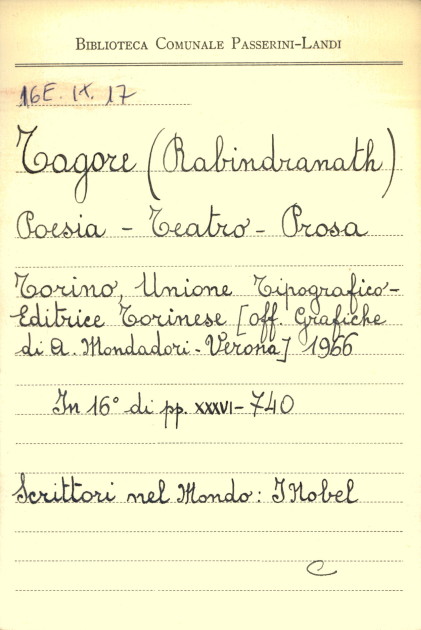 BIBLIOTECA COMUNALE PASSERINI-LANDI
16E. IX. 17
Tagore (Rabindranath)
Poesia - Teatro - Prosa
Torino, Unione Tipografico-
Editrice Torinese [Off. Grafiche
di A. Mondadori - Verona] 1966
In 16° di pp. XXXVI-740
Scrittori nel Mondo: I Nobel
C